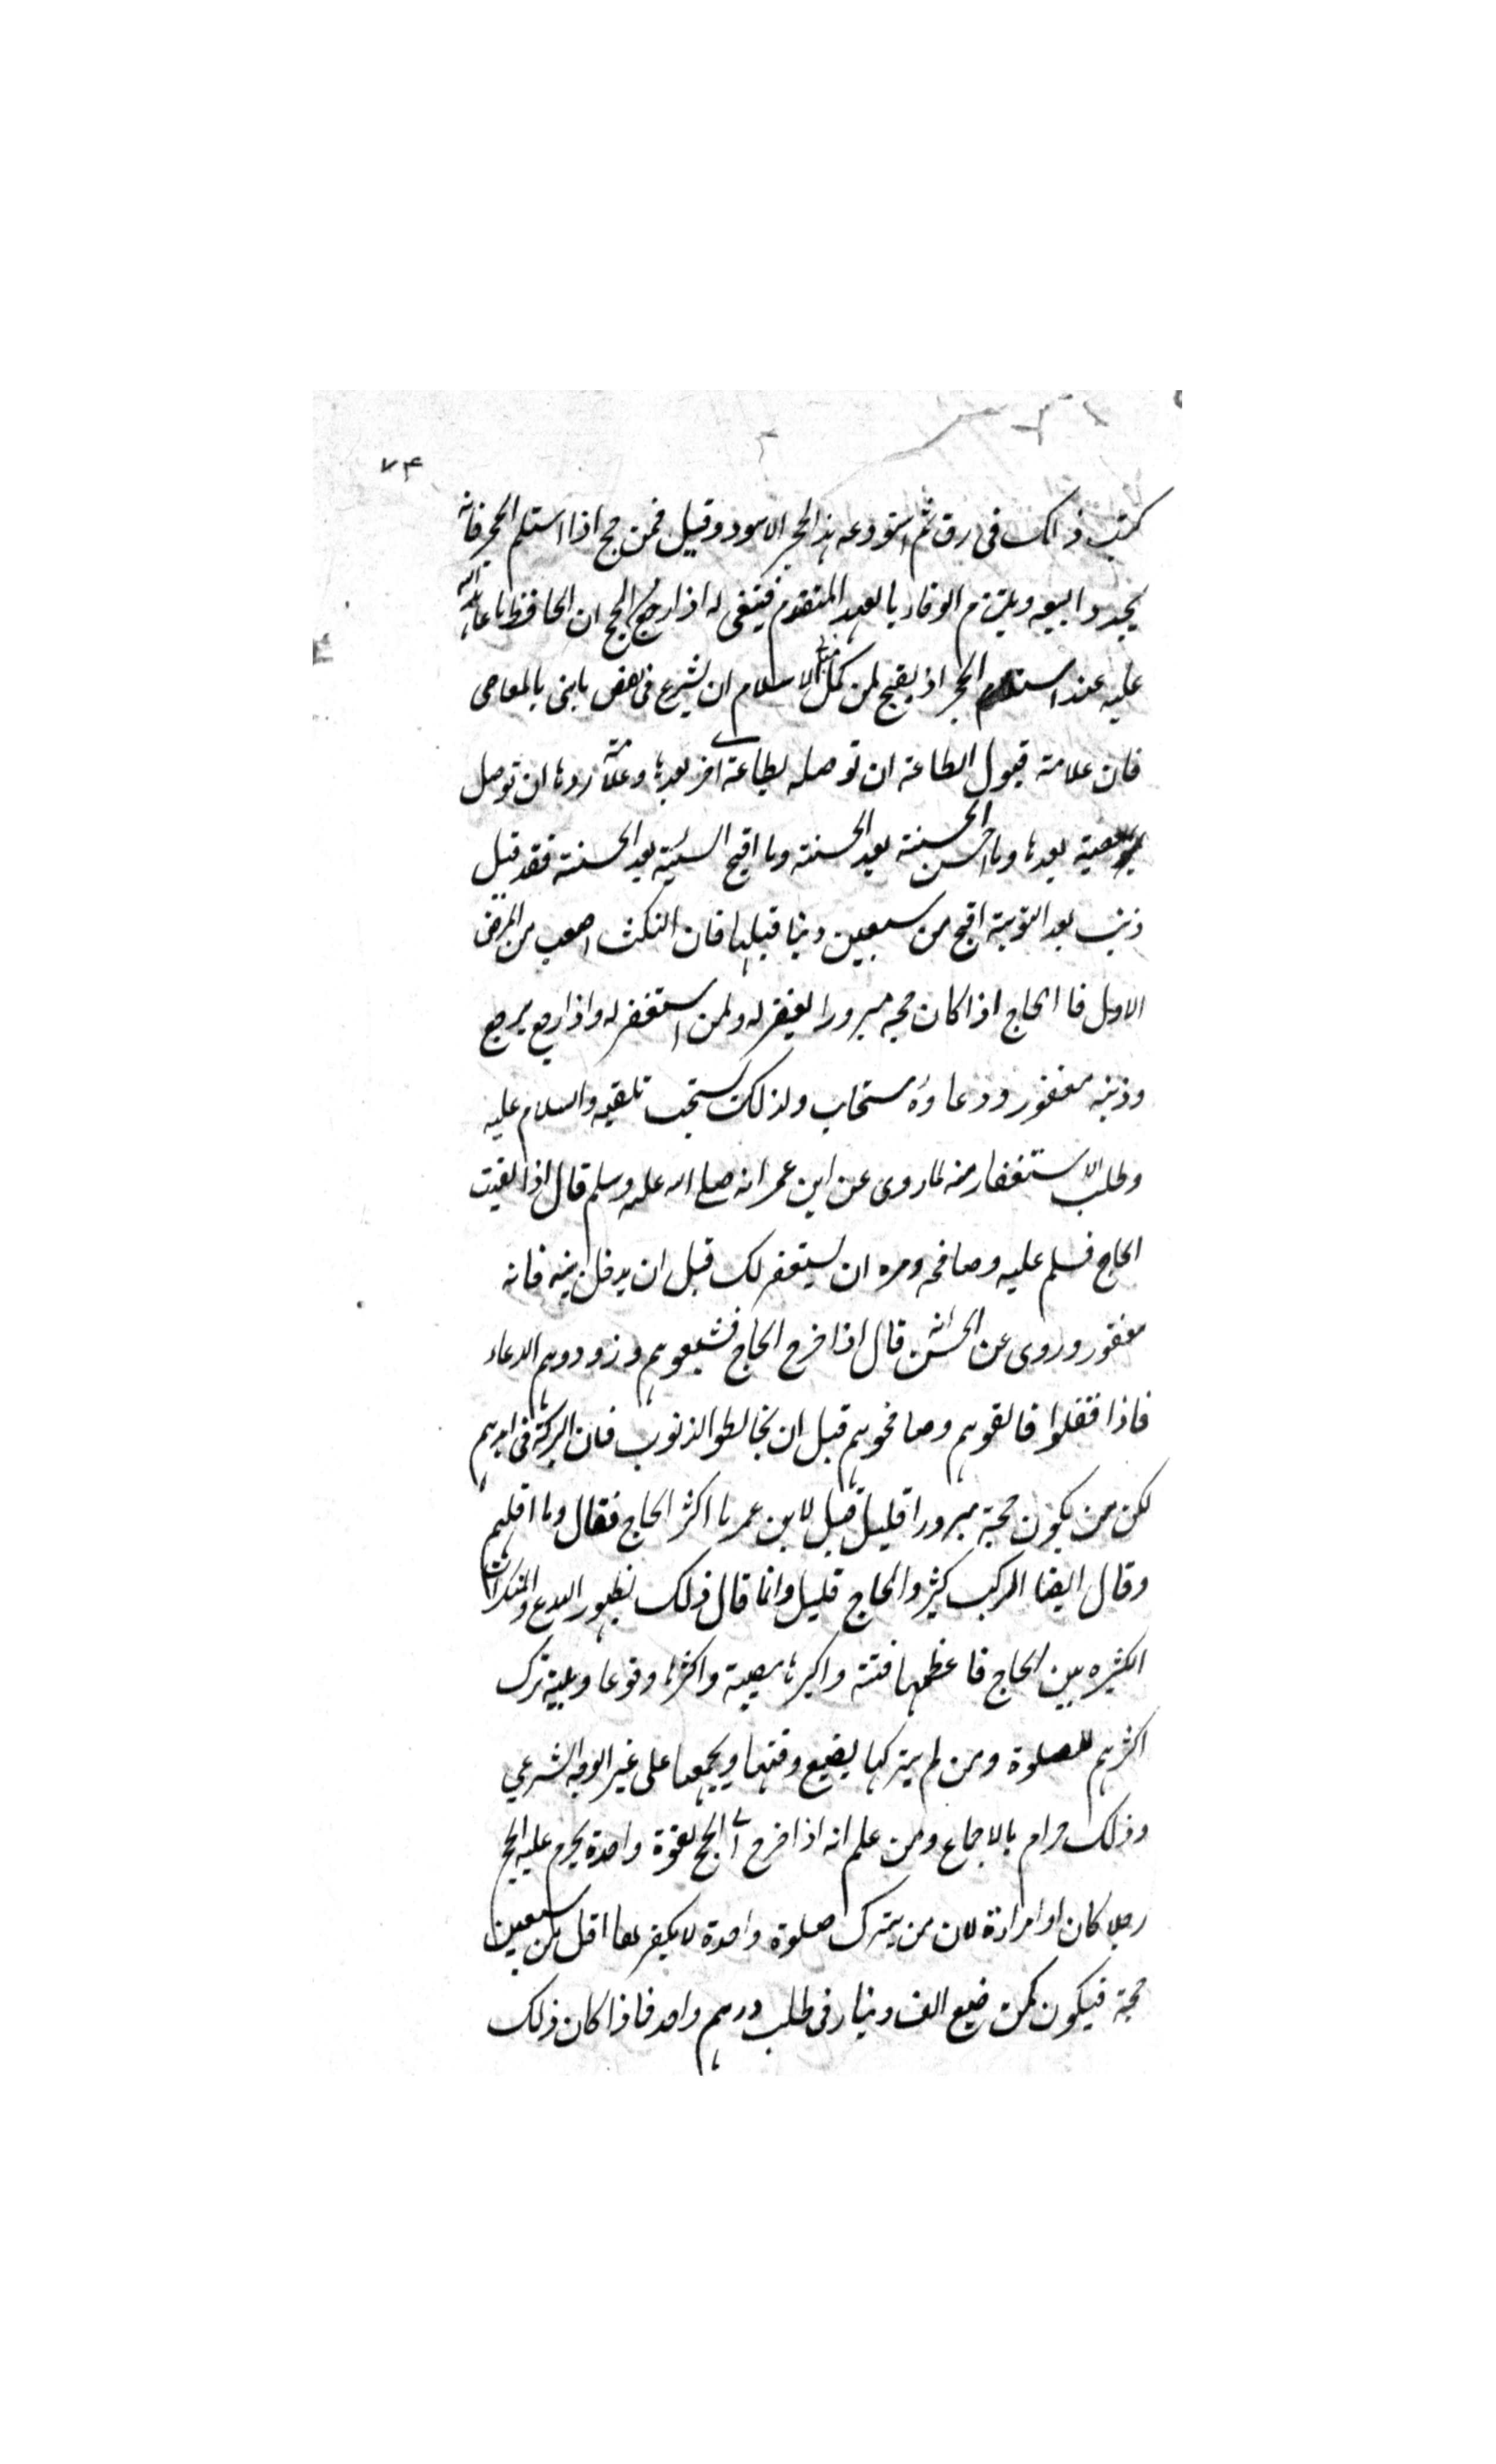 ٧٤
كتب ذلك فى رق ثم استودعه هذا الحجر الاسود وقيل فمن حج اذا استلم الحجر فانه
يجدد البيعه ويلتزم الوفاء بالعهد المتقدم فينبغى له اذا رجع من الحج ان يحافظ ما عاهد الله
عليه عند استلام الحجر اذ يقبح لمن كمل مبانى الاسلام ان يشرع فى نقض ما بنى بالمعاصى
فان علامة قبول الطاعة ان توصله بطاعة اخرى بعدها وعلامة ردها ان توصل
بمعصية بعدها وما احسن الحسنة بعد الحسنة وما اقبح السيئة بعد الحسنة فقد قيل
ذنب بعد التوبة اقبح من سبعين ذنبا قبلها فان النكث اصعب من المرض
الاول فا الحاج اذا كان حجه مبرورا يغفر له ولمن استغفر له واذا رجع يرجع
وذنبه مغفور ودعاوه مستجاب ولذلك يستحب تلقيه والسلام عليه
وطلب الاستغفار منه لما روى عن ابن عمر انه صلى الله عليه وسلم قال اذا لقيت
الحاج فسلم عليه وصافحه ومره ان يستغفر لك قبل ان يدخل بيته فانه
مغفور وروى عن الحسن انه قال اذا خرج الحاج فشيعوهم وزودوهم الدعاء
فاذا قفلوا فالقوهم وصافحوهم قبل ان يخالطوا الذنوب فان البركة فى ايديهم
لكن من يكون حجة مبرورا قليل قيل لابن عمر ما اكثر الحاج فقال وما اقلهم
وقال ايضا الركب كثير والحاج قليل وانما قال ذلك لظهور البدع والمنكرات
الكثيره بين الحاج فاعظمها فتنة واكبرها مصيبة واكثرها وقوعا وبلية ترك
اكثرهم للصلوة ومن لم يتركها يضيع وقتها ويجمعها على غير الوجه الشرعي
وذلك حرام بالاجماع ومن علم انه اذا خرج الى الحج تفوته واحدة يحرم عليه الحج
رجلا كان او امراءة لان من يترك صلوة واحدة لا يكفرها اقل من سبعين
حجة فيكون كمن ضيع الف دينار فى طلب درهم واحد فاذا كان ذلك